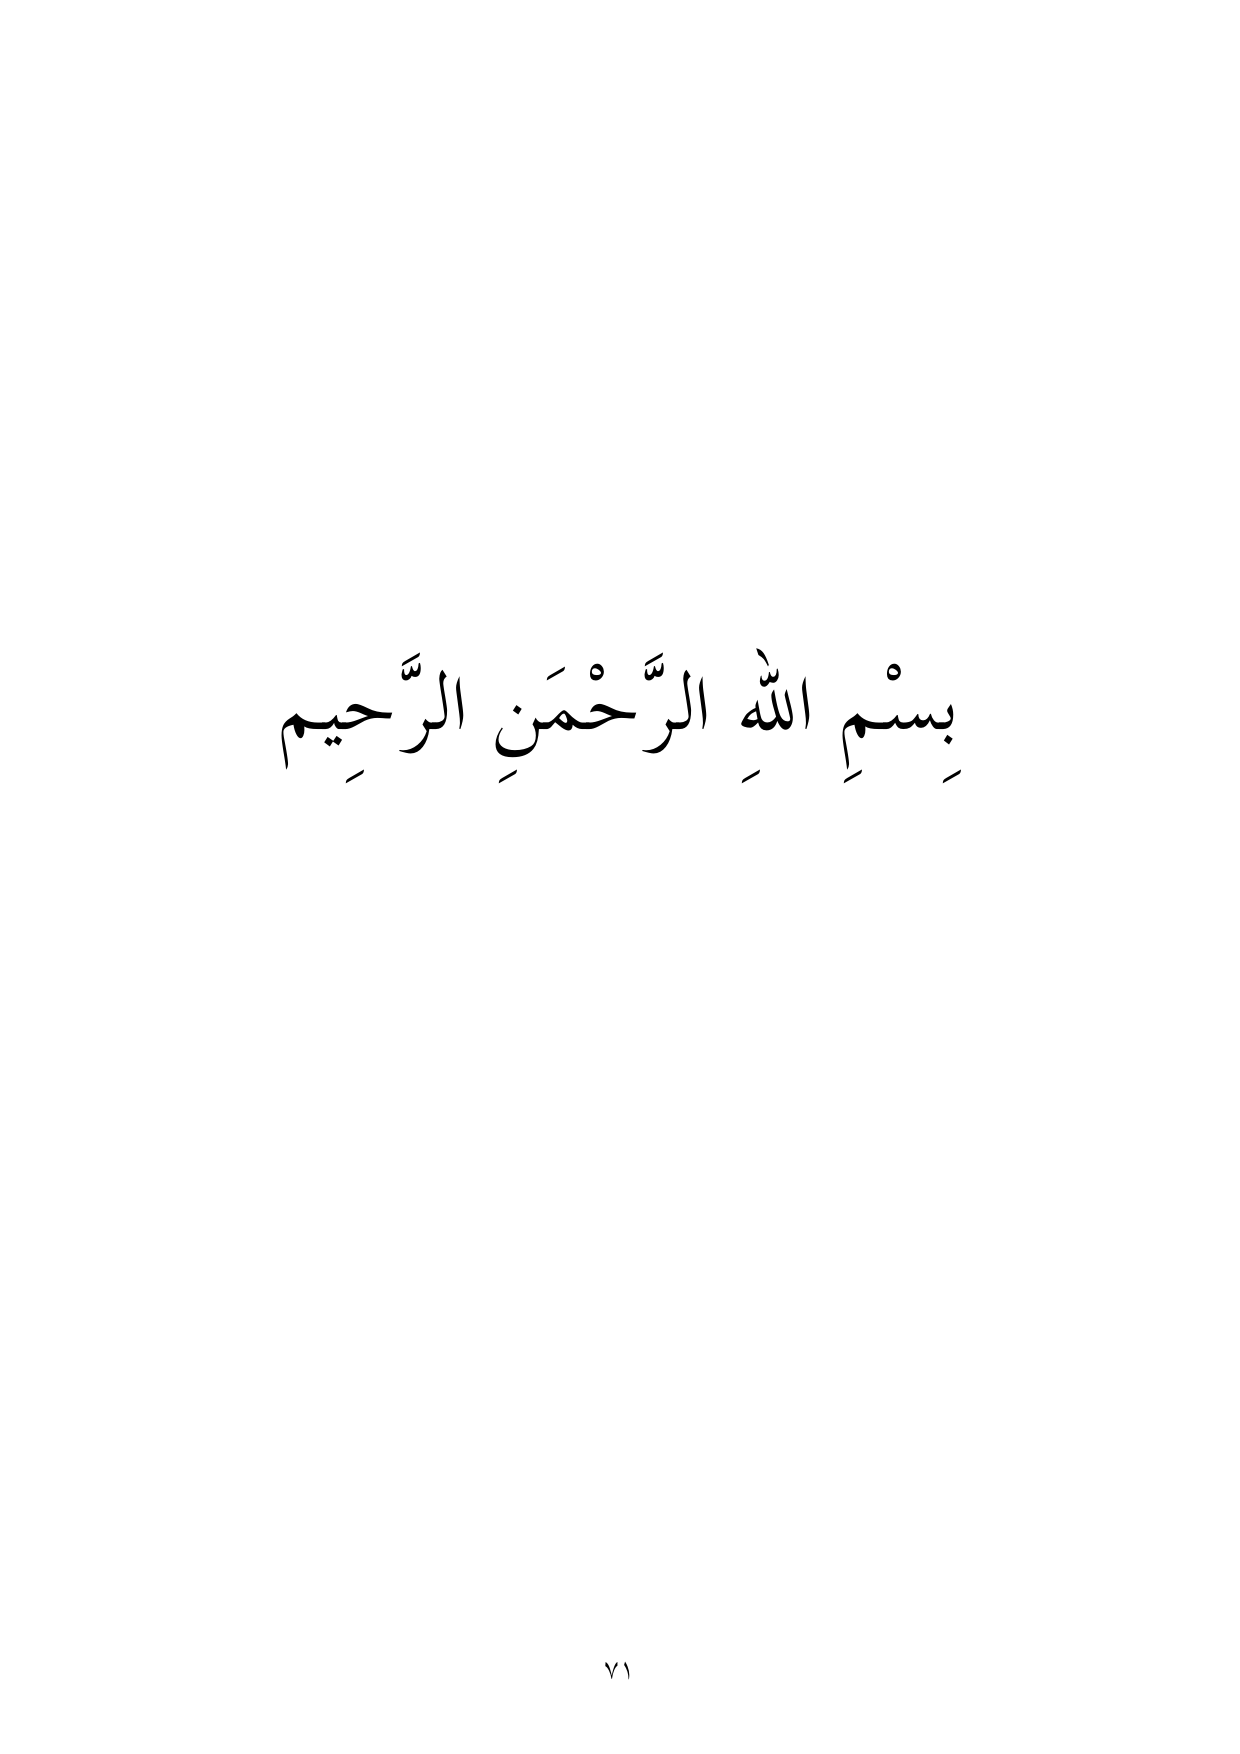 بِسْمِ اللهِ الرَّحْمَنِ الرَّحِيم
٧١